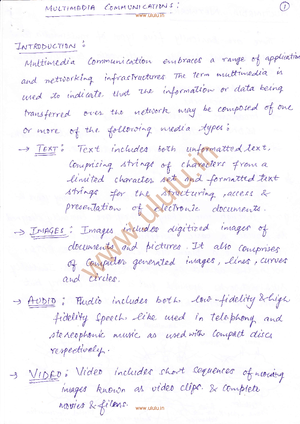 www.ululu.in
MULTIMEDIA COMMUNICATIONS:
1
INTRODUCTION:
Multimedia Communication embraces a range of application
and networking infrastructures The term multimedia is
used to indicate that the information or data being
transferred over the network may be composed of one
or more of the following media types:
→ TEXT: Text includes both unformatted text,
Comprising strings of characters from a
limited character set and formatted text
strings for the structuring, access &
presentation of electronic documents.
→ IMAGES: Images includes digitized images of
documents and pictures. It also comprises
of Computer generated images, lines, curves
and circles.
→ AUDIO: Audio includes both low-fidelity & high
fidelity speech like used in telephony and
stereophonic music as used with Compact discs
respectively.
→ VIDEO: Video includes short sequences of moving
images known as video clips. & Complete
Movies & films.
www.ululu.in
www.ululu.in